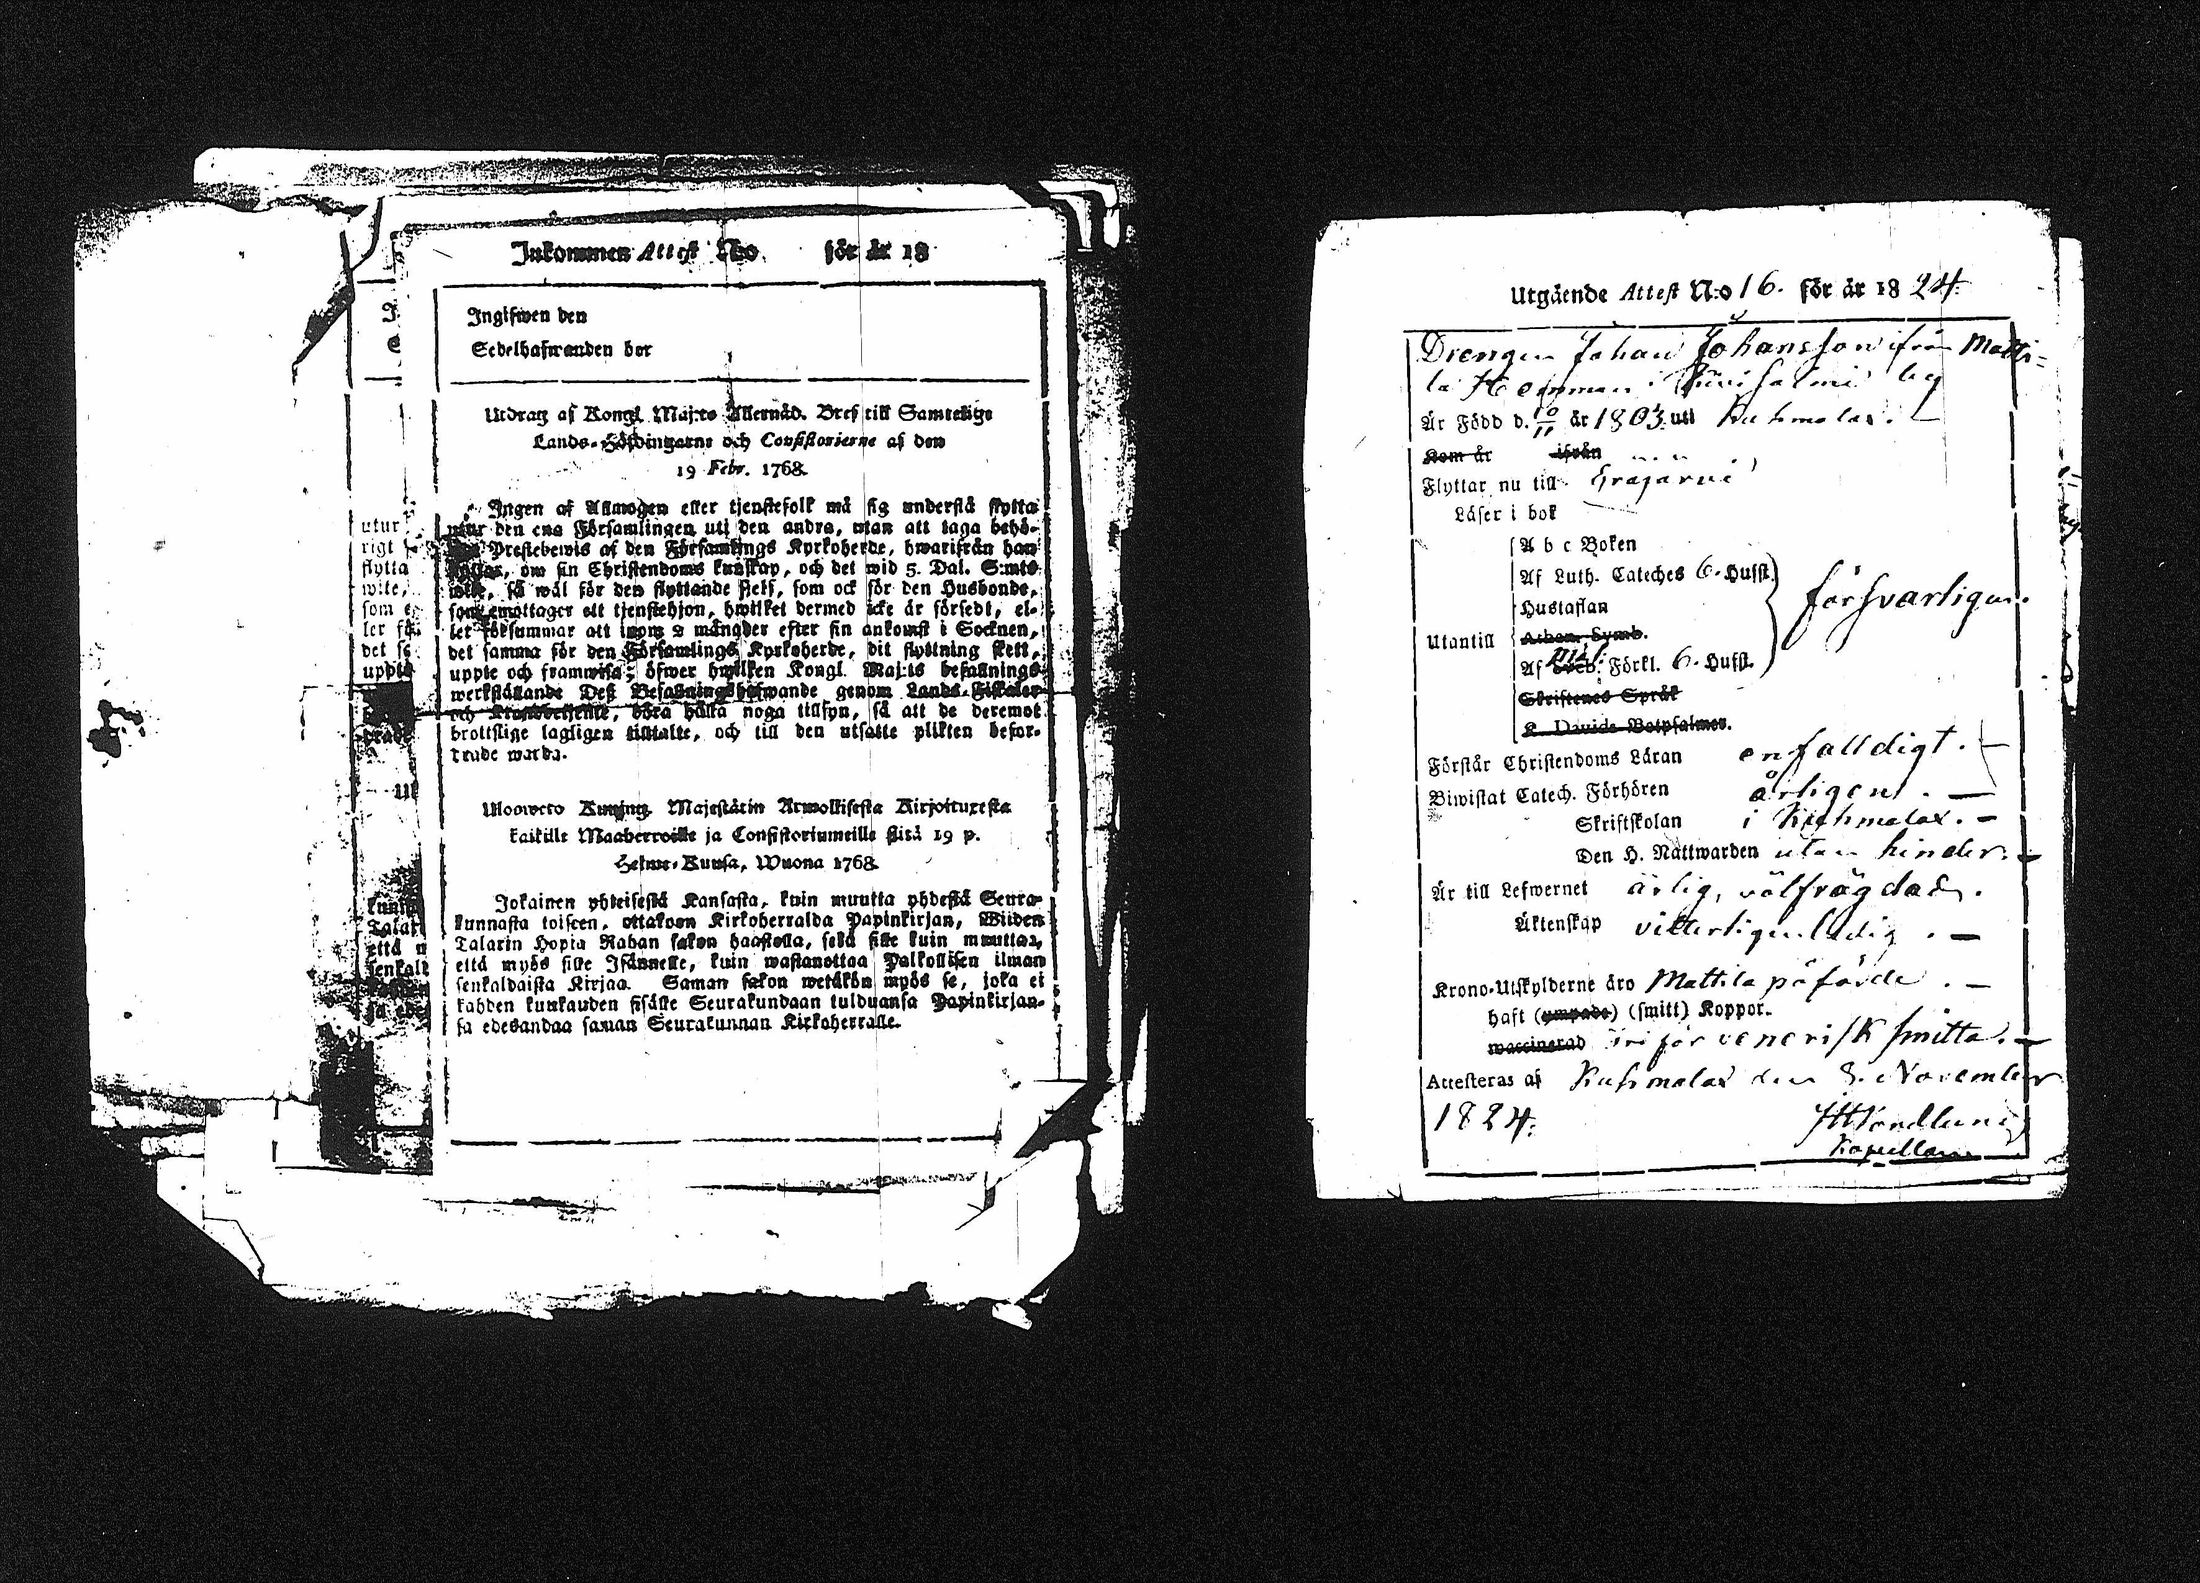 Inkommen Attest No för år 18
Ingifwen den
Sedelhafwanden bor
Utdrag af Kongl. Maj:ts Allernåd. Bref till Samtelige
Lands-Höfdingarne och Consistorierne af den
19 Febr. 1768.
Ingen af Allmogen eller tjenstefolk må sig understå flytta
utur den ena Församlingen uti den andra, utan att taga behö-
Prestebewis af den Församlings Kyrkoherde, hwarifrån han
flyttar, om sin Christendoms kunskap, och det wid 5. Dal. S:mts
wite, så wäl för den flyttande sjelf, som ock för den Husbonde,
som emottager ett tjenstehjon, hwilket dermed icke är försedt, el-
ler försummar att inom 2 månader efter sin ankomst i Socknen,
det samma för den Församlings Kyrkoherde, dit flyttning skett,
uppte och framwisa; öfwer hwilken Kongl. Maj:ts befallnings
werkställande Deß Befallningshafwande genom Lands-Fiskaler
och Kronobetjente, böra hålla noga tillsyn, så att de deremot
brottslige lagligen tilltalte, och till den utsatte plikten befor-
drade warda.
Uloosweto Kuning. Majestätin Armollisesta Kirjoituxesta
kaikille Maaherroille ja Consistoriumeille siitä 19 p.
Helme-Kuusa, Wuona 1768.
Jokainen yhteisestä Kansasta, kuin muutta yhdestä Seura-
kunnasta toiseen, ottakoon Kirkoherralda Papinkirjan, Wiiden
Talarin Hopia Rahan sakon haastolla, sekä sille kuin muuttaa,
että myös sille Isännelle, kuin wastanottaa Palkollisen ilman
senkaldaista Kirjaa. Saman sakon wetäkön myös se, joka ei
kahden kuukauden sisälle Seurakundaan tulduansa Papinkirjan-
sa edesandaa saman Seurakunnan Kirkoherralle.
Utgående Attest N:o 16. för år 1824.
Drengen Johan Johansson ifrån Matti-
la Hemman i by
Är Född d. 10/11 år 1803. uti Kuhmolax.
Kom år ifrån
Flyttar nu till Gräjärvi
Läser i bok
A b c Boken
Af Luth. Cateches 6. Hufst.
försvarligen.
Hustaflan
Utantill
Athan. Symb.
Af Sveb. Förkl. 6. Hufst.
Skriftenes Språk
K. Davids Botpsalmer.
Förstår Christendoms Läran enfalldigt.
Biwistat Catech. Förhören årligen.
Skriftskolan i Kuhmolax.
Den H. Nattwarden utan hinder.
Är till Lefwernet ärlig, välfrägdad.
Äktenskap vitterligen ledig.
Krono-Utskylderne äro Mattila påförde.
haft (ympade) (smitt) Koppor.
waccinerad fri för venerisk smitta.
Attesteras af Kuhmolax den 8. November
1824.
Kapellan